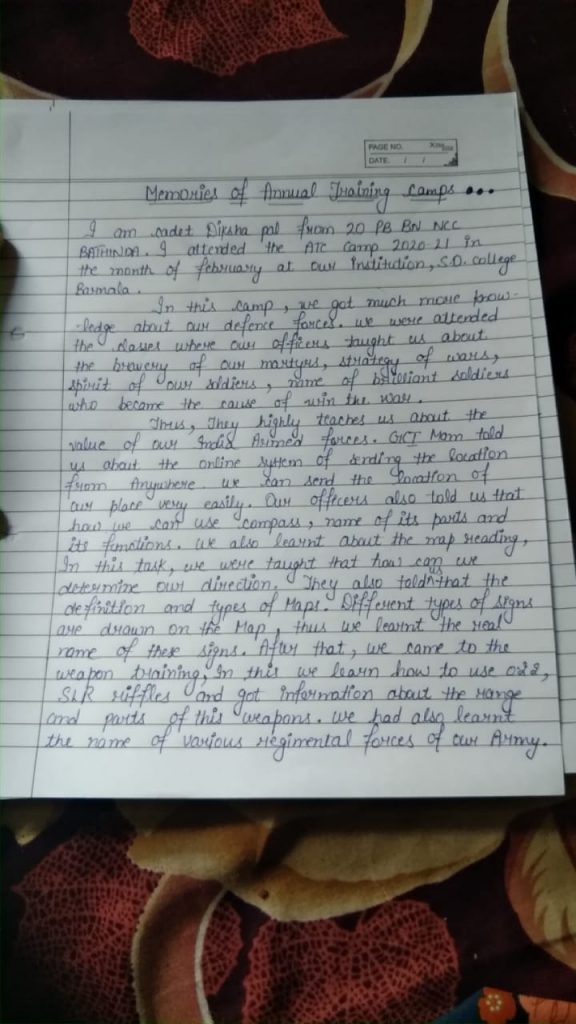 PAGE NO.
DATE: / /
Memories of Annual Training Camps...
I am cadet Diksha pal from 20 PB BN NCC
BATHINDA. I attended the ATC Camp 2020-21 in
the month of february at our Institution, S.D. College
Barnala.
In this camp, we got much more know-
ledge about our defence forces. we were attended
the classes where our officers taught us about
the bravery of our martyrs, strategy of wars,
spirit of our soldiers, name of brilliant soldiers
who became the cause of win the war.
Thus, They highly teaches us about the
value of our India Armed forces. GCI Mam told
us about the online system of sending the location
from Anywhere. we can send the location of
our place very easily. Our officers also told us that
how we can use compass, name of its parts and
its functions. we also learnt about the map reading,
In this task, we were taught that how can we
determine our direction. They also told us that the
definition and types of Maps. Different types of signs
are drawn on the Map, thus we learnt the real
name of these signs. After that, we came to the
weapon training, In this we learn how to use 0.22,
SLR riffles and got information about the range
and parts of this weapons. we had also learnt
the name of various regimental forces of our Army.